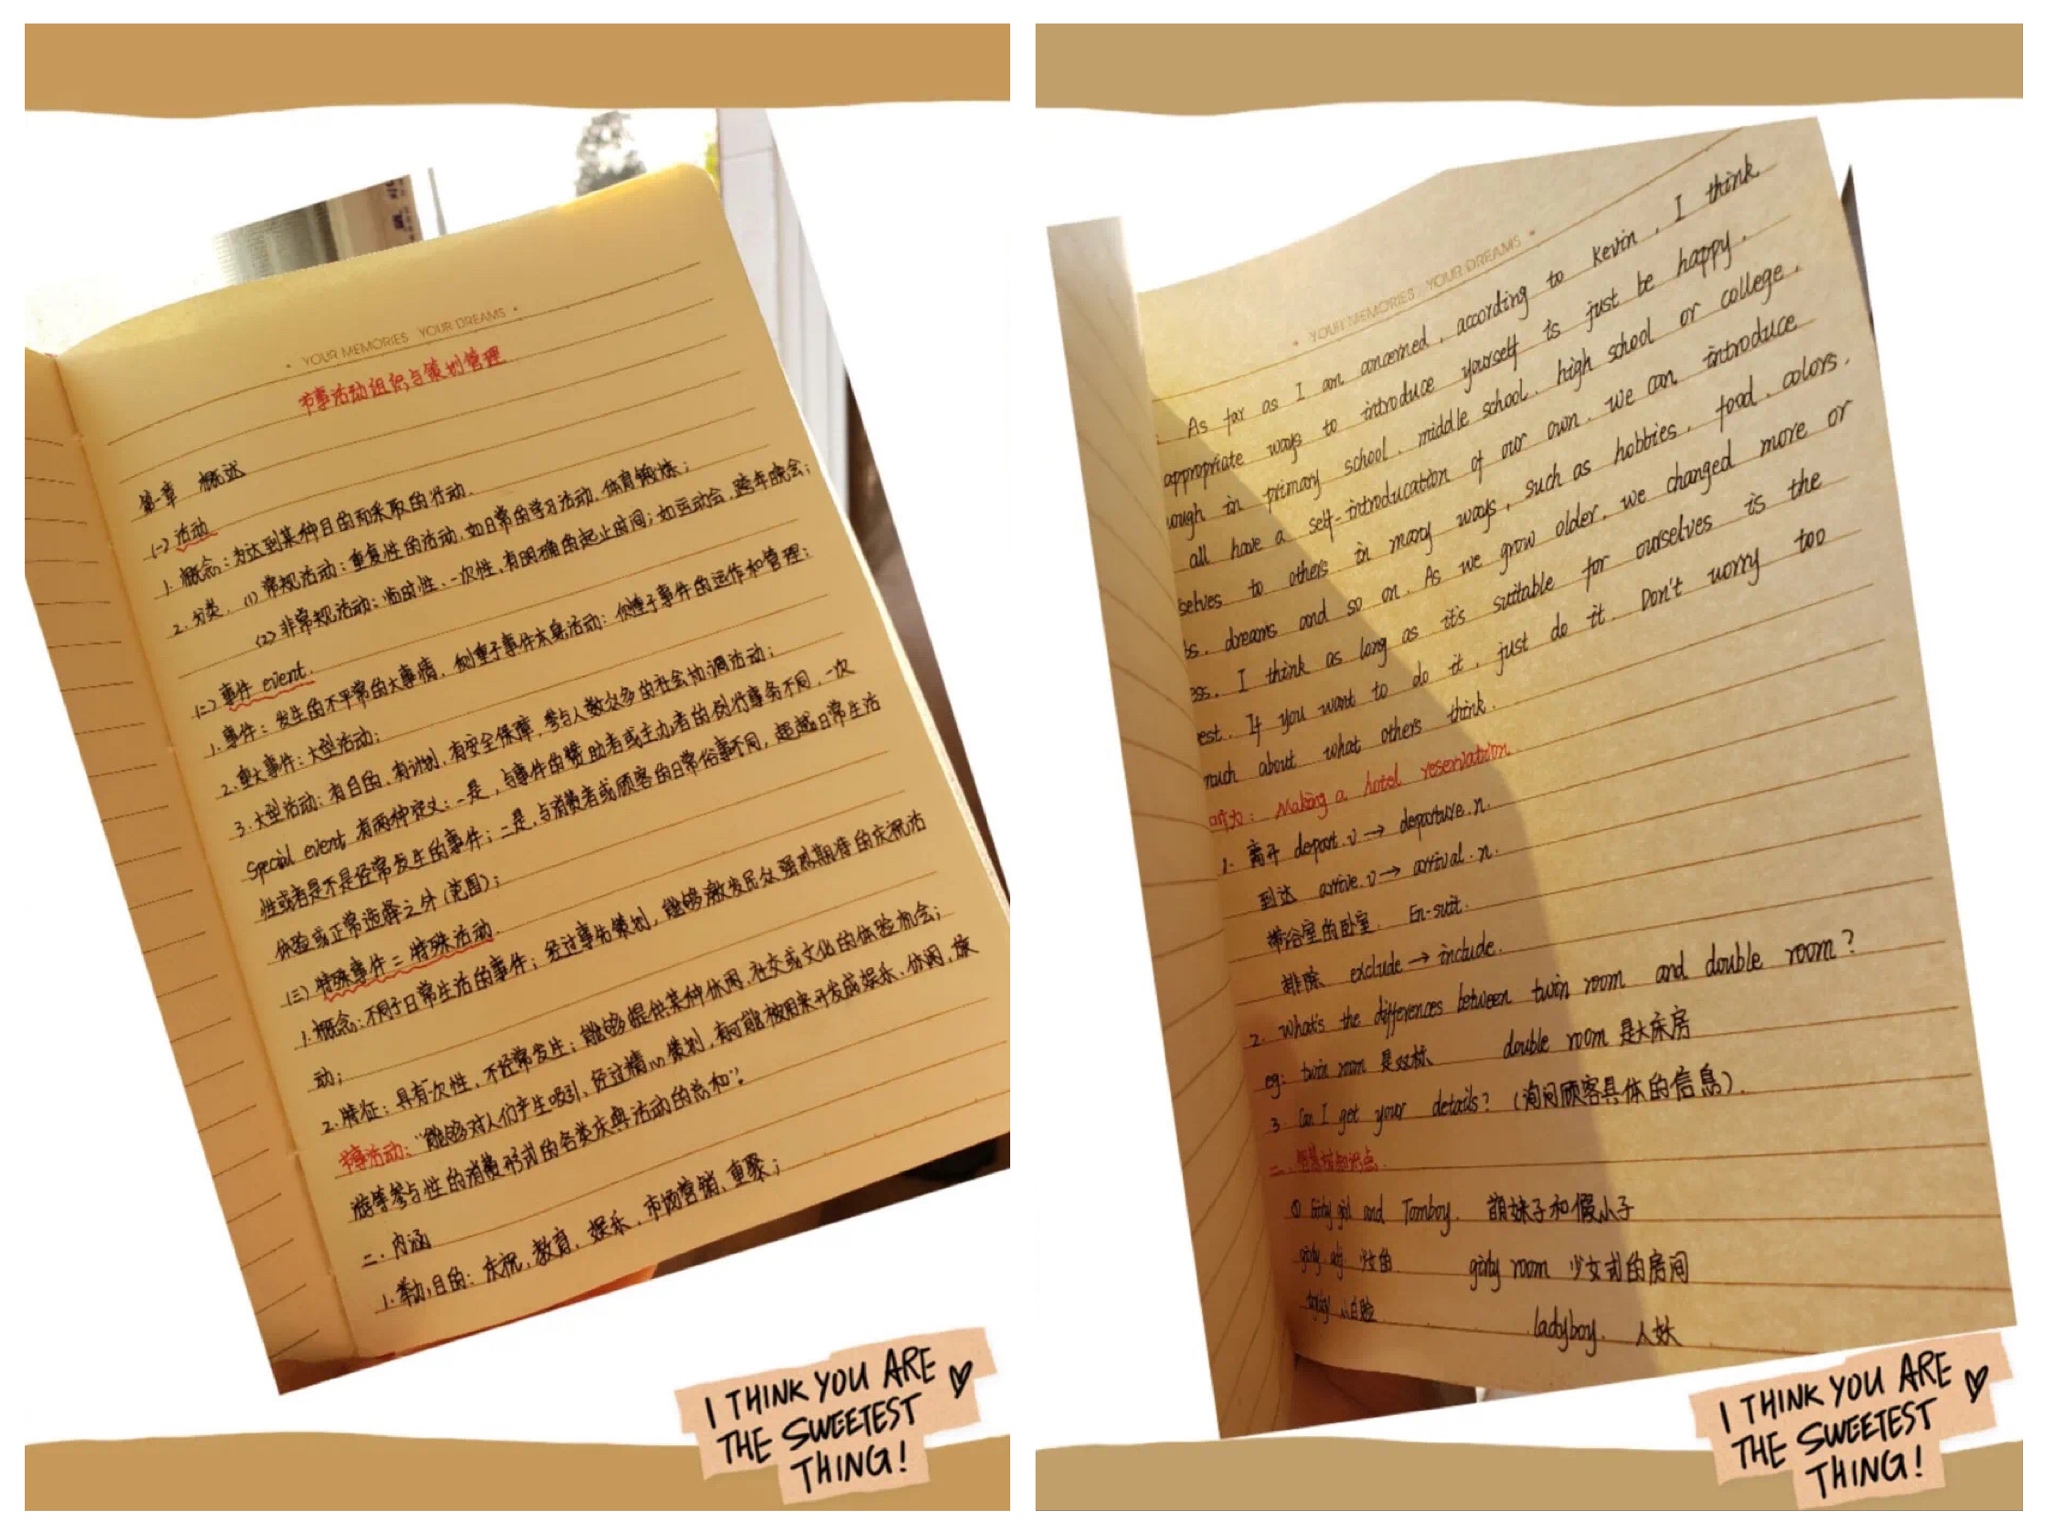 YOUR MEMORIES YOUR DREAMS
节事活动组织与策划管理
第一章 概述
(一) 活动
1. 概念：为达到某种目的而采取的行动.
2. 分类. (1) 常规活动：重复性的活动, 如日常的学习活动, 体育锻炼；
(2) 非常规活动：临时性、一次性, 有明确的起止时间；如运动会, 跨年晚会；
(二) 事件 event.
1. 事件：发生的不平常的大事情, 侧重于事件本身活动：侧重于事件的运作和管理；
2. 重大事件：大型活动；
3. 大型活动：有目的, 有计划, 有安全保障, 参与人数众多的社会协调活动；
Special event 有两种定义：一是, 与事件的赞助者或主办者的例行事务不同, 一次
性或者是不是经常发生的事件；二是, 与消费者或顾客的日常俗事不同, 超越日常生活
体验或正常选择之外 (范围)；
(三) 特殊事件 = 特殊活动.
1. 概念：不同于日常生活的事件；经过事先策划, 能够激发民众强烈期待的庆祝活
动；
2. 特征：具有一次性, 不经常发生；能够提供某种休闲, 社交或文化的体验机会；
节事活动："能够对人们产生吸引, 经过精心策划, 有可能被用来开发成娱乐、休闲, 旅
游等参与性的消费形式的各类庆典活动的总和".
二. 内涵
1. 举办目的：庆祝, 教育, 娱乐, 市场营销, 重聚；
I THINK YOU ARE
THE SWEETEST
THING!
YOUR MEMORIES YOUR DREAMS
As far as I am concerned, according to kevin, I think
appropriate ways to introduce yourself is just be happy.
ough in primary school, middle school, high school or college.
all have a self-introducation of our own. we can introduce
selves to others in many ways, such as hobbies, food, colors.
ts, dreams and so on. As we grow older, we changed more or
ess. I think as long as it's suitable for ourselves is the
est. If you want to do it, just do it. Don't worry too
much about what others think.
Making a hotel reservation
1. 离开 depart. v → departure. n.
到达 arrive. v → arrival. n.
带浴室的卧室. En-suit.
排除 exclude → include.
2. what's the differences between twin room and double room?
eg: twin room 是双标 double room 是大床房
3 Can I get your details? (询问顾客具体的信息).
二. 知识点.
① Girly girl and Tomboy. 萌妹子和假小子
girly adj 少女的 girly room 少女式的房间
ladyboy. 人妖
I THINK YOU ARE
THE SWEETEST
THING!